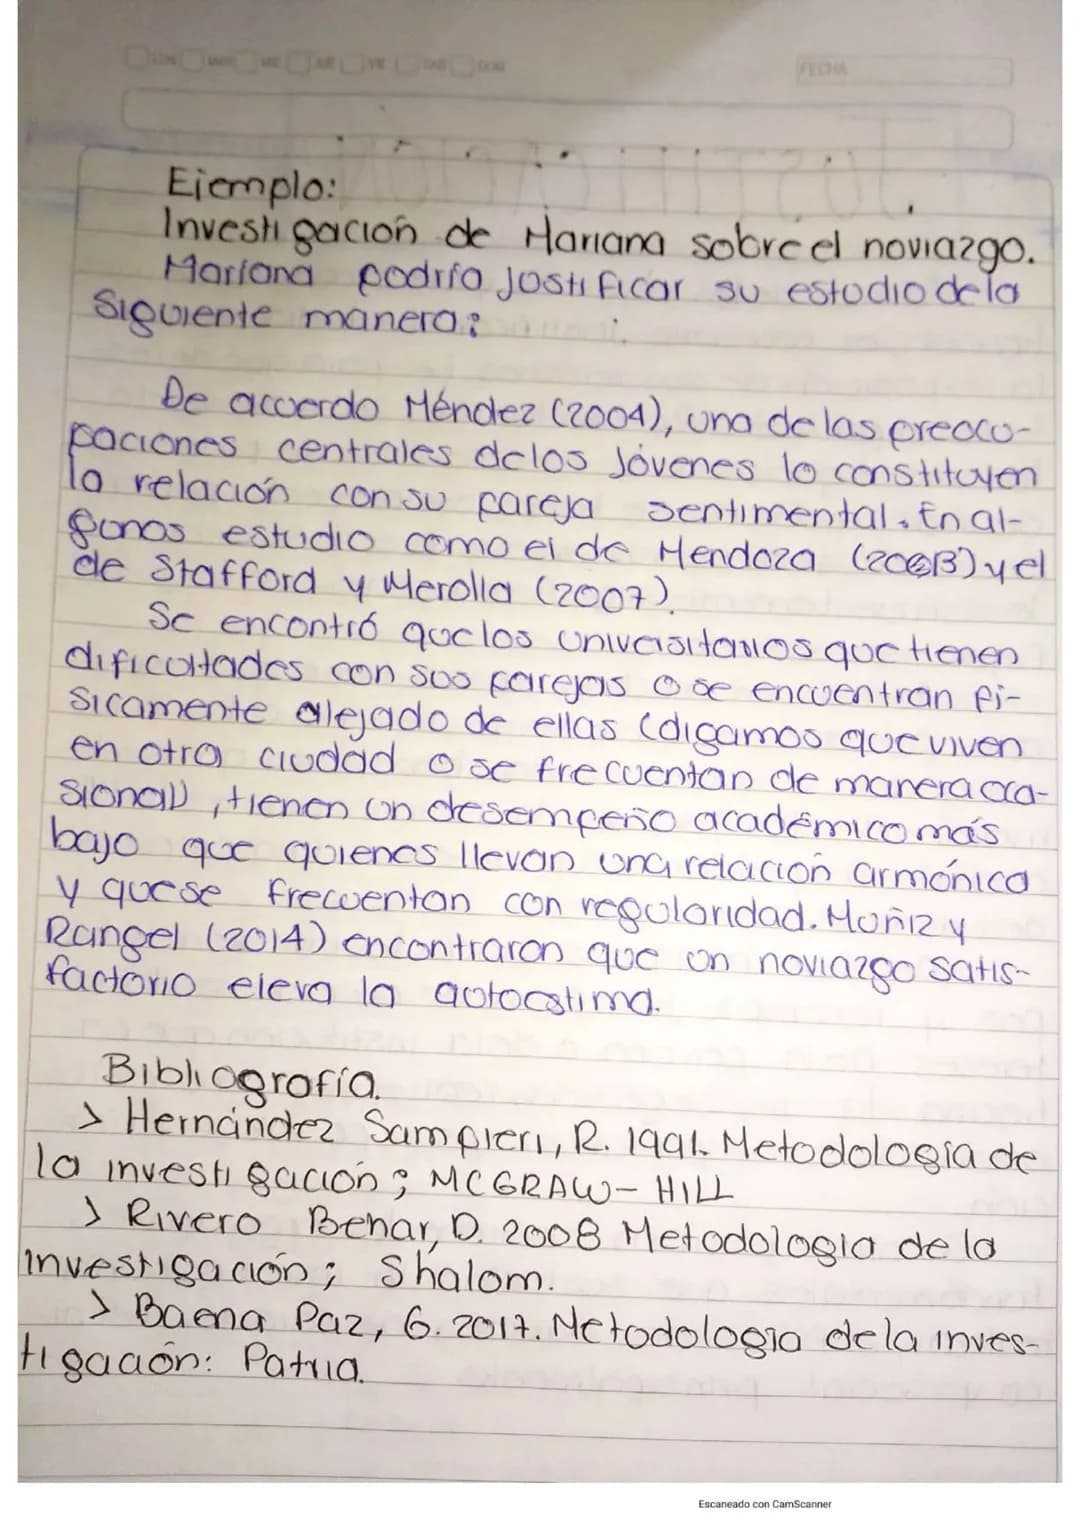 LUN MAR MIE JUE VIE SAB DOM
FECHA
Ejemplo:
Investigación de Mariana sobre el noviazgo.
Mariana podría Justificar su estudio de la
Siguiente manera:
De acuerdo Méndez (2004), una de las preocu-
paciones centrales de los Jóvenes lo constituyen
la relación con su pareja sentimental. En al-
gunos estudio como el de Mendoza y el
de Stafford y Merolla (2007).
Se encontró que los universitarios que tienen
dificultades con sus parejas o se encuentran fi-
sicamente alejado de ellas (digamos que viven
en otra ciudad o se frecuentan de manera oca-
sional), tienen un desempeño académico más
bajo que quienes llevan una relación armónica
y que se frecuentan con regularidad. Muñiz y
Rangel (2014) encontraron que un noviazgo satis-
factorio eleva la autoestima.
Bibliografía.
> Hernández Sampieri, R. 1991. Metodología de
la investigación; MCGRAW-HILL
> Rivero Behar, D. 2008 Metodologia de la
investigación; Shalom.
> Baena Paz, G. 2017. Metodologia de la inves-
tigación: Patria.
Escaneado con CamScanner